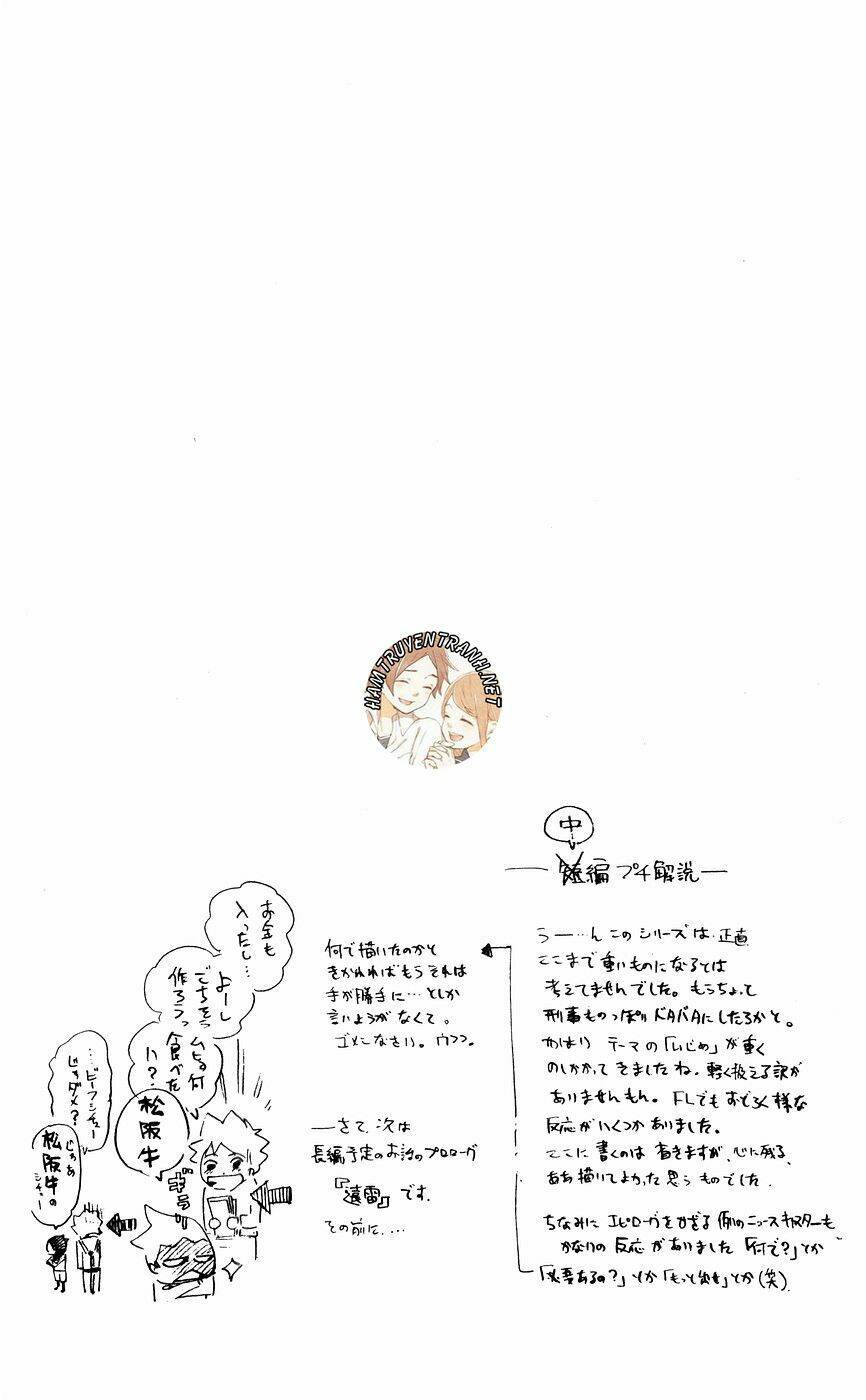 HAMTRUYENTRANH.NET
中
編 プチ解説
うー…ん このシリーズは 正直
ここまで重いものになるとは
考えてませんでした。もうちょっと
刑事ものっぽいドタバタにしたるかと。
やはり テーマの「いじめ」が重く
のしかかってきましたね。軽く扱える訳が
ありませんもん。FLでもおどろく様な
反応がいくつかありました。
ここに書くのは 省きますが、心に残る、
ああ描いてよかったと思うものでした。
ちなみに エピローグをかざる 例のニュースキャスターも
かなりの反応がありました「何で?」とか
「必要あるの?」とか「もっと出せ」とか(笑)
何で描いたのかと
きかれればもうそれは
手が勝手に…としか
言いようがなくて。
ゴメンなさい。ウフフ。
―さて、次は
長編予定のお話のプロローグ
『遠雷』です。
その前に…
お金も
入ったし…
よーし
ごちそう
作ろうっ
ムヒョ何
食べた
い?
松阪牛
ギラッ
…ビーフシチュー
じゃダメ?
じゃあ
松阪牛の
シチュー